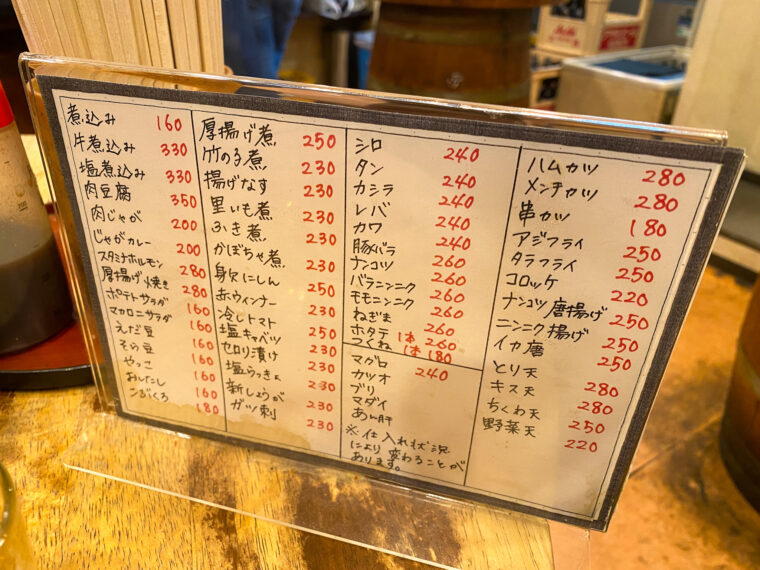 煮込み 160
牛煮込み 330
塩煮込み 330
肉豆腐 350
肉じゃが 200
じゃがカレー 200
スタミナホルモン 280
厚揚げ焼き 280
ポテトサラダ 160
マカロニサラダ 160
えだ豆 160
そら豆 160
やっこ 160
おしたし 160
こぶくろ 180
厚揚げ煮 250
竹の子煮 230
揚げなす 230
里いも煮 230
ふき煮 230
かぼちゃ煮 230
身欠にしん 250
赤ウィンナー 250
冷しトマト 250
塩キャベツ 230
セロリ漬け 230
塩らっきょ 230
新しょうが 230
ガツ刺 230
シロ 240
タン 240
カシラ 240
レバ 240
カワ 240
豚バラ 260
ナンコツ 260
バラニンニク 260
モモニンニク 260
ねぎま
ホタテ 1本 260
つくね 1本 180
マグロ 240
カツオ
ブリ
マダイ
あん肝
※仕入れ状況
により変わることが
あります。
ハムカツ 280
メンチカツ 280
串カツ 180
アジフライ 250
タラフライ 250
コロッケ 220
ナンコツ唐揚げ 250
ニンニク揚げ 250
イカ唐 250
とり天 280
キス天 280
ちくわ天 250
野菜天 220
Asahi